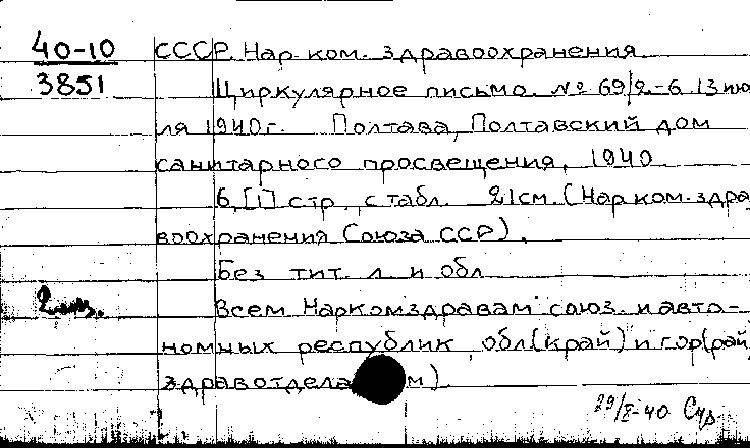 40-10
3851
СССР. Нар. ком. здравоохранения.
Циркулярное письмо. № 69/2-6. 13 ию
ля 1940г. Полтава, Полтавский дом
санитарного просвещения, 1940.
6, [1] стр. с табл. 21см. (Нар ком. здра
воохранения Союза ССР).
Без тит. л и обл
Всем Наркомздравам союз. и авто-
номных республик, обл(край) и гор(рай
здравотдела м).
29/X-40